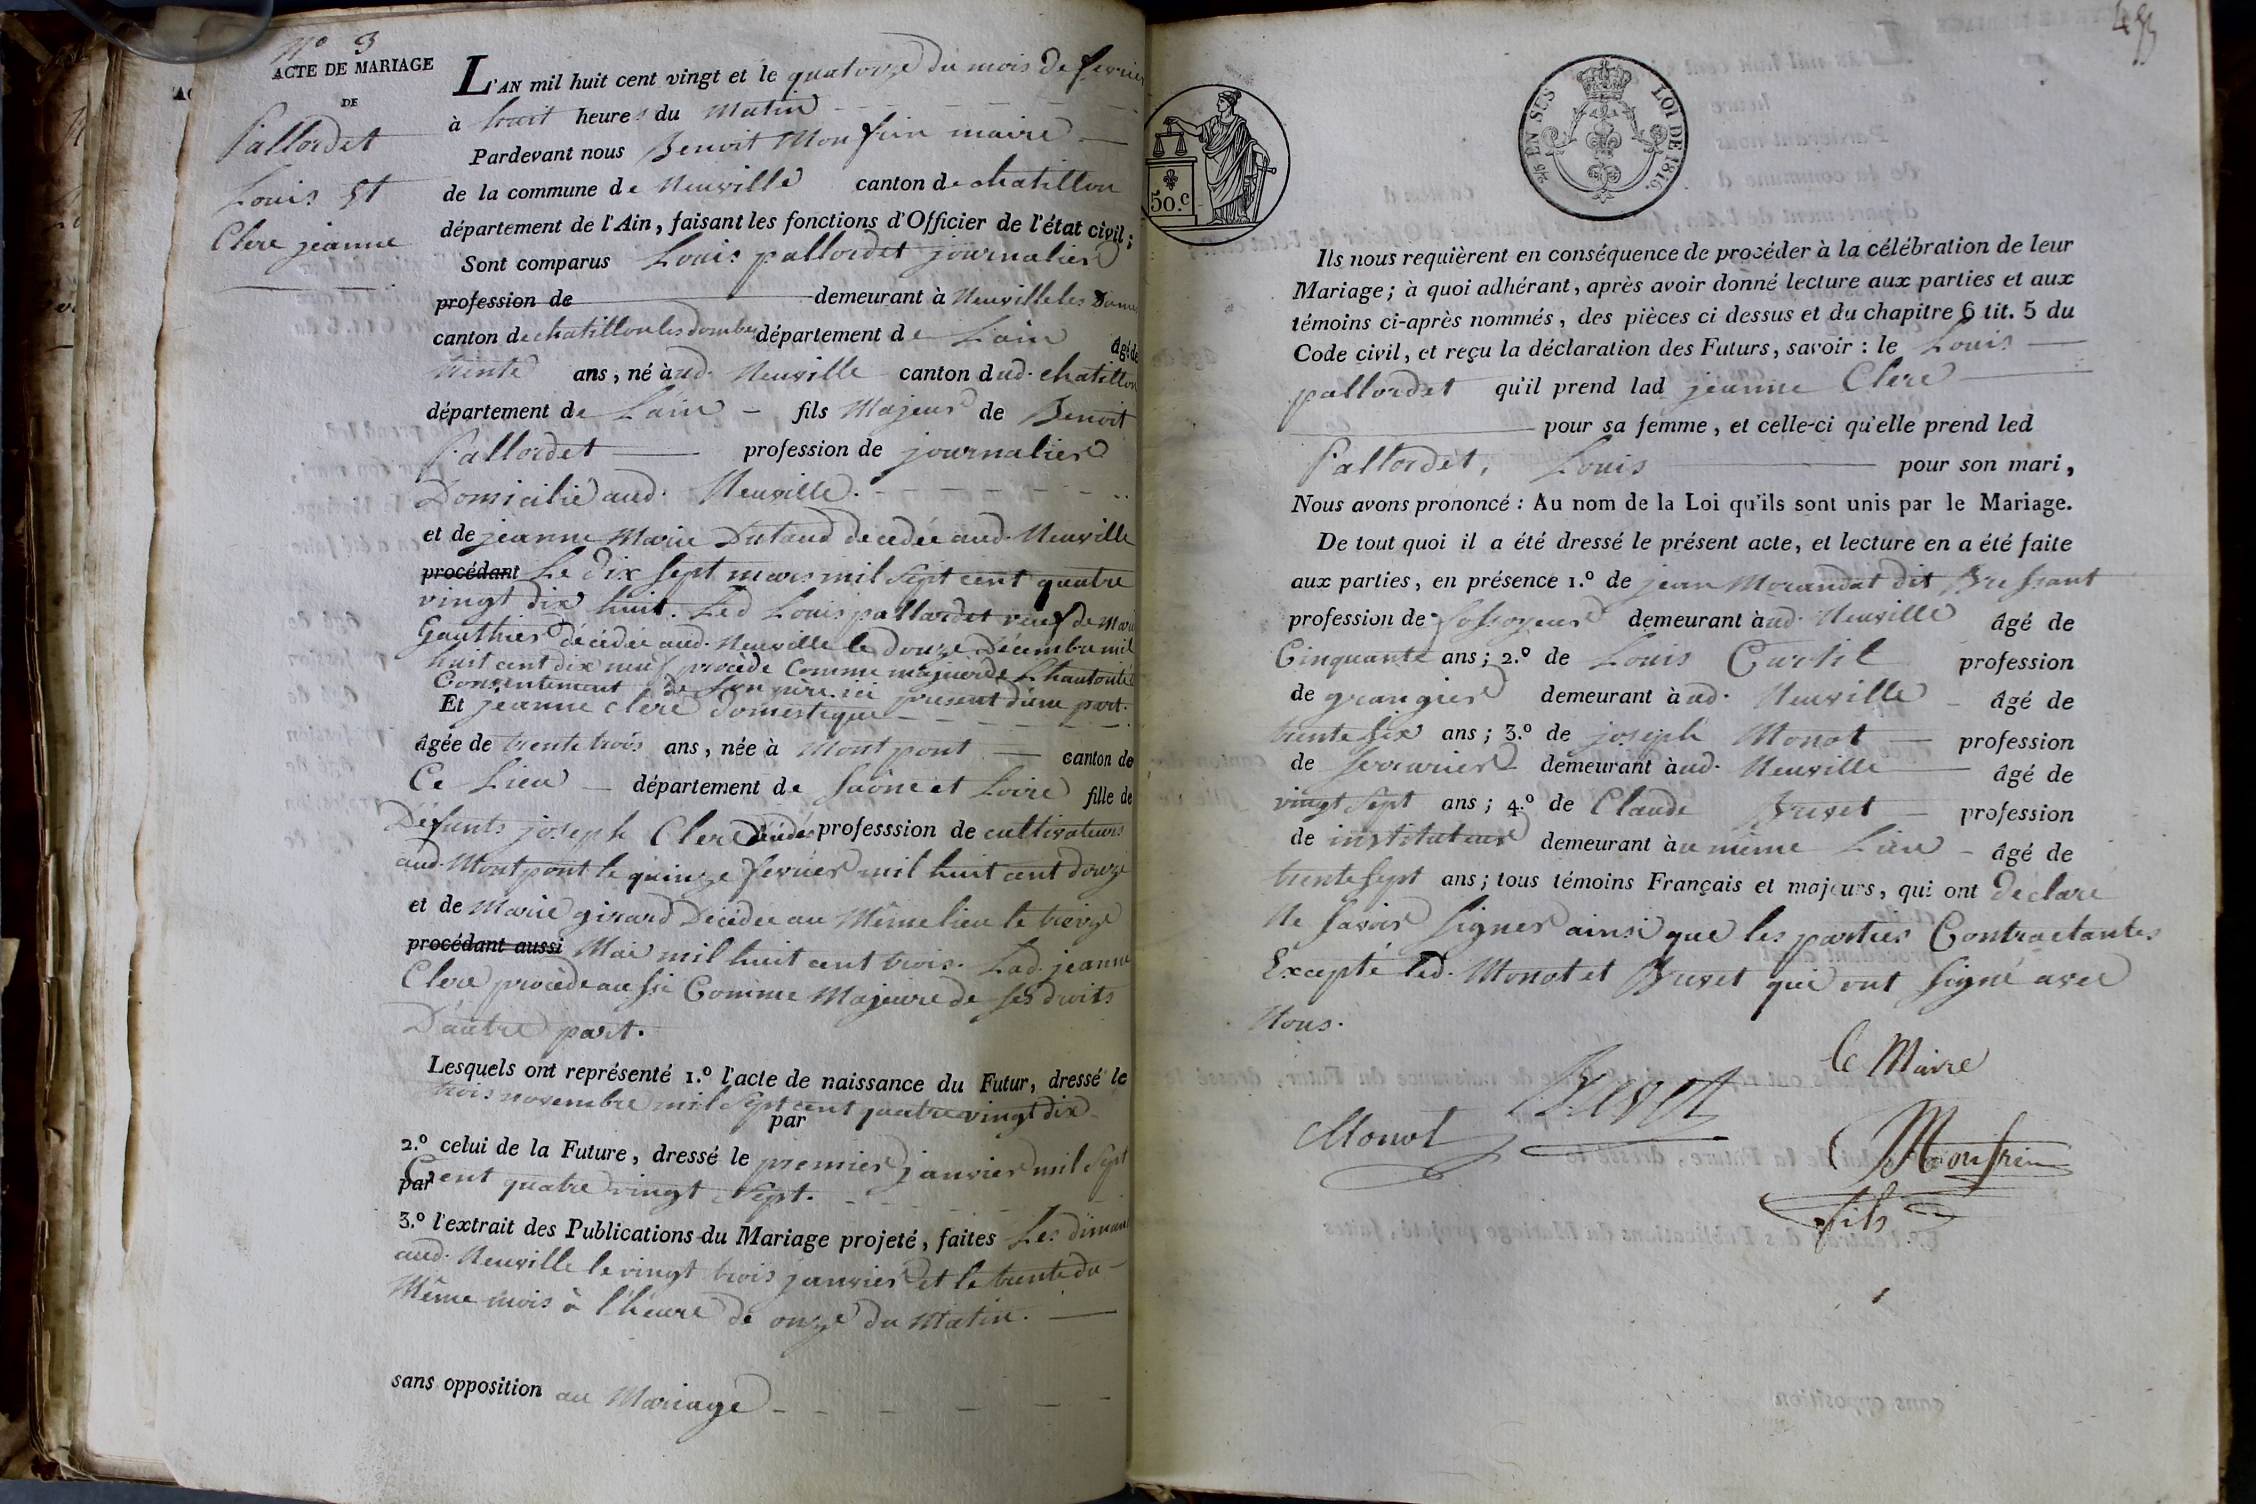 N° 3
ACTE DE MARIAGE
DE
Pallordet
Louis Et
Clere jeanne
L'AN mil huit cent vingt et le quatorze du mois de fevrier
à huit heures du Matin
Pardevant nous Benoit Monfrin maire
de la commune de Neuville canton de chatillon
département de l'Ain, faisant les fonctions d'Officier de l'état civil;
Sont comparus Louis pallordet journalier
profession de demeurant à Neuville les Dombes
canton de chatillon les dombes département de Lain âgé de
trente ans, né aud. Neuville canton dud. chatillon
département de Lain fils Majeur de Benoit
Pallordet profession de journalier
Domicilié aud. Neuville.
et de jeanne Marie Dutaud decedée aud. Neuville
procédant Le dix sept mars mil sept cent quatre
vingt dix huit. Led Louis pallordet veuf de Marie
Gauthier décédée aud. Neuville le douze Décembre mil
huit cent dix neuf procède comme majeur de Lhautorité
Consentement de son père ici présent d'une part.
Et jeanne clere domestique
âgée de trente trois ans, née à Montpont canton de
Ce Lieu département de Saône et Loire fille de
Défunts joseph Clere décédé professsion de cultivateurs
aud. Montpont le quinze fevrier mil huit cent douze
et de Marie girard Décédée au Même lieu le treize
procédant aussi Mai mil huit cent trois. Lad. jeanne
Clere procède aussi Comme Majeure de ses droits
D'autre part.
Lesquels ont représenté 1.º l'acte de naissance du Futur, dressé le
trois novembre mil sept cent quatre vingt dix
par
2.º celui de la Future, dressé le premier janvier mil sept
par Cent quatre vingt sept.
3.º l'extrait des Publications du Mariage projeté, faites Les diman
aud. Neuville le vingt trois janvier et le trente du
Même mois à l'heure de onze du Matin.
sans opposition au Mariage
50.c
2/5 EN SUS
LOI DE 1816.
Ils nous requièrent en conséquence de procéder à la célébration de leur
Mariage; à quoi adhérant, après avoir donné lecture aux parties et aux
témoins ci-après nommés, des pièces ci dessus et du chapitre 6 tit. 5 du
Code civil, et reçu la déclaration des Futurs, savoir : le Louis
pallordet qu'il prend lad jeanne Clere
pour sa femme, et celle-ci qu'elle prend led
Pallordet, Louis pour son mari,
Nous avons prononcé : Au nom de la Loi qu'ils sont unis par le Mariage.
De tout quoi il a été dressé le présent acte, et lecture en a été faite
aux parties, en présence 1.º de jean Morandat dit Bressant
profession de fossoyeur demeurant aud. Neuville âgé de
Cinquante ans; 2.º de Louis Curtil profession
de grangier demeurant aud. Neuville âgé de
trente six ans; 3.º de joseph Monot profession
de serrurier demeurant aud. Neuville âgé de
vingt sept ans; 4.º de Claude Buvet profession
de instituteur demeurant au même Lieu âgé de
trente sept ans; tous témoins Français et majeurs, qui ont déclaré
Ne savoir signer ainsi que les parties Contractantes
Excepté led. Monot et Buvet qui ont signé avec
Nous.
le Maire
Monot Buvet Monfrin
fils